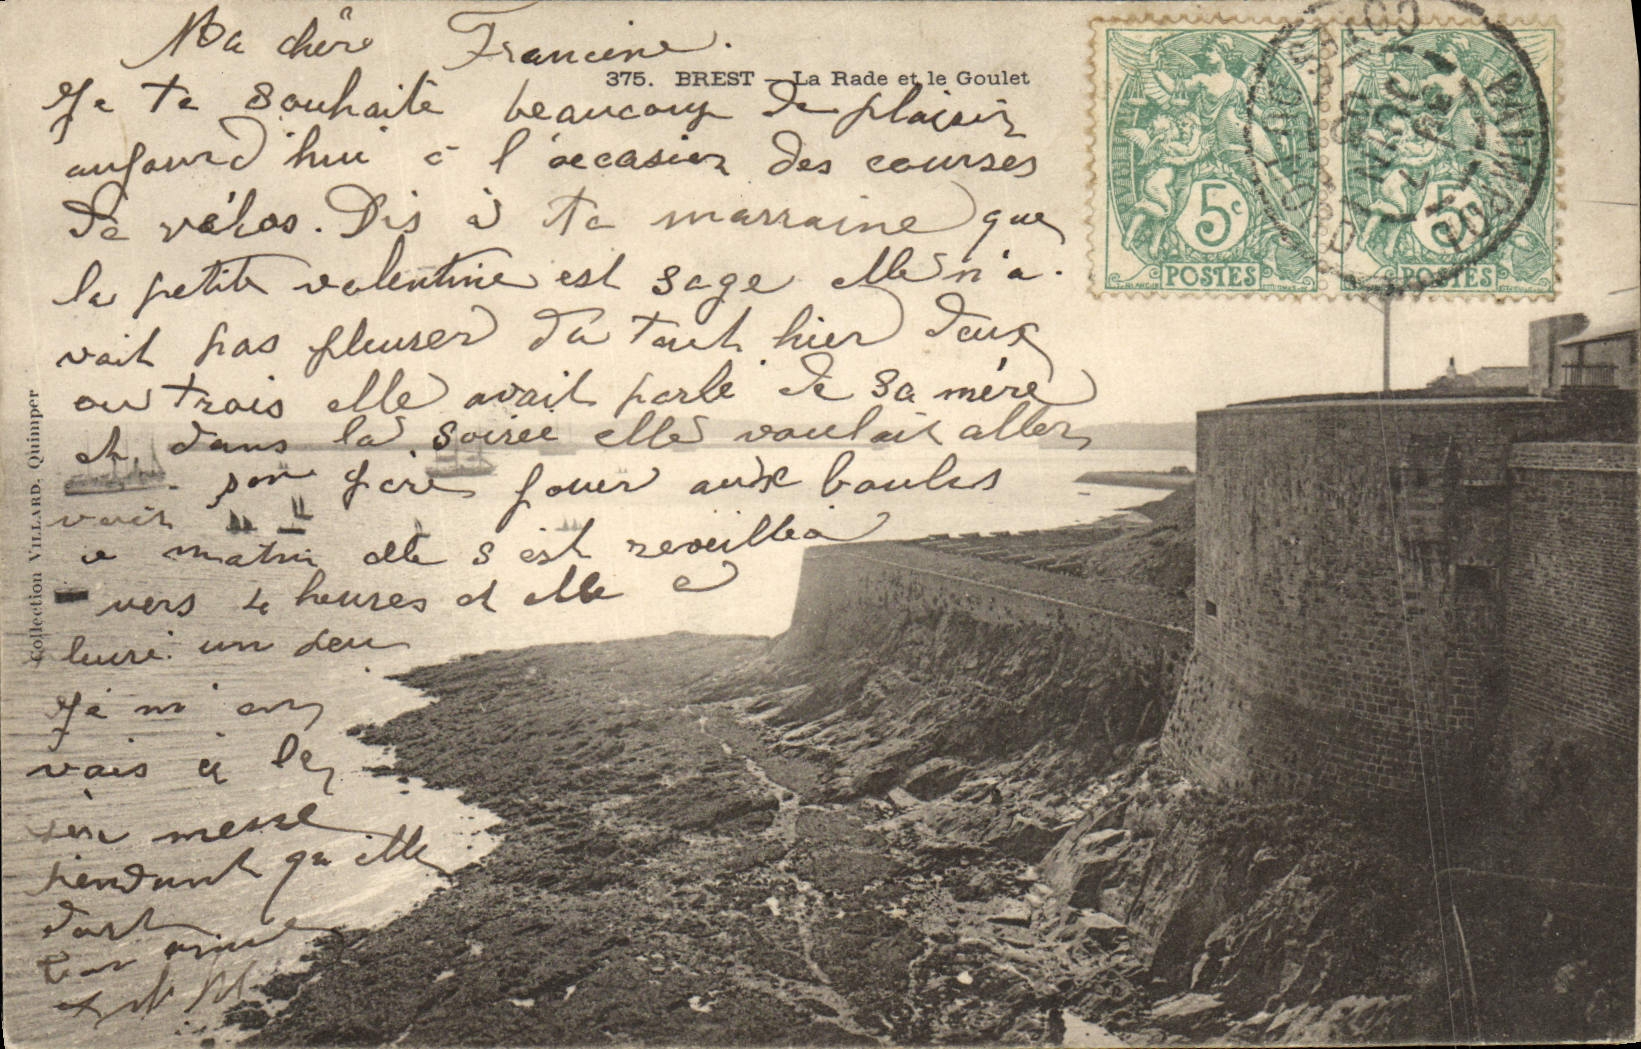 Ma chère Francine.
375. BREST — La Rade et le Goulet
Je te souhaite beaucoup de plaisir
aujourd'hui à l'occasion des courses
de vélos. Dis à ta marraine que
la petite valentine est sage elle n'a
vait pas pleurer du tout hier deux
ou trois elle avait parlé de sa mère
et dans la soirée elle voulait aller
voir son père jouer aux boules
ce matin elle s'est reveillée
vers 4 heures et elle a
un peu
Je m'en
vais à la
messe
pendant qu'elle
dort
Collection VILLARD, Quimper
5c
POSTES
5c
POSTES